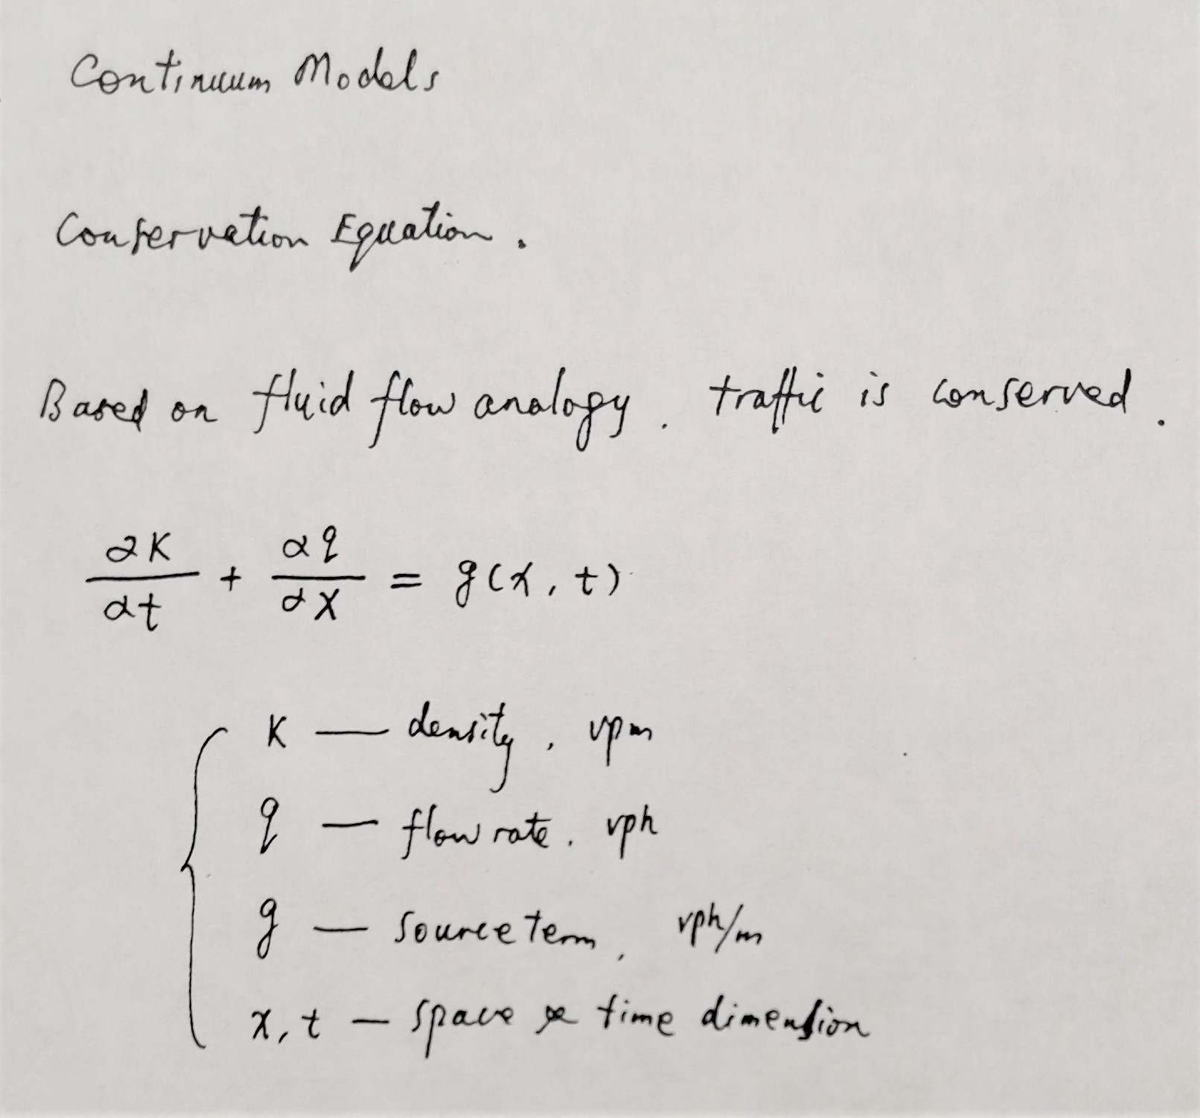 Continuum Models
Conservation Equation.
Based on fluid flow analogy. traffic is conserved.
∂K/∂t + ∂q/∂x = g(x, t)
K — density, vpm
q — flow rate. vph
g — source term, vph/m
x, t — space & time dimension